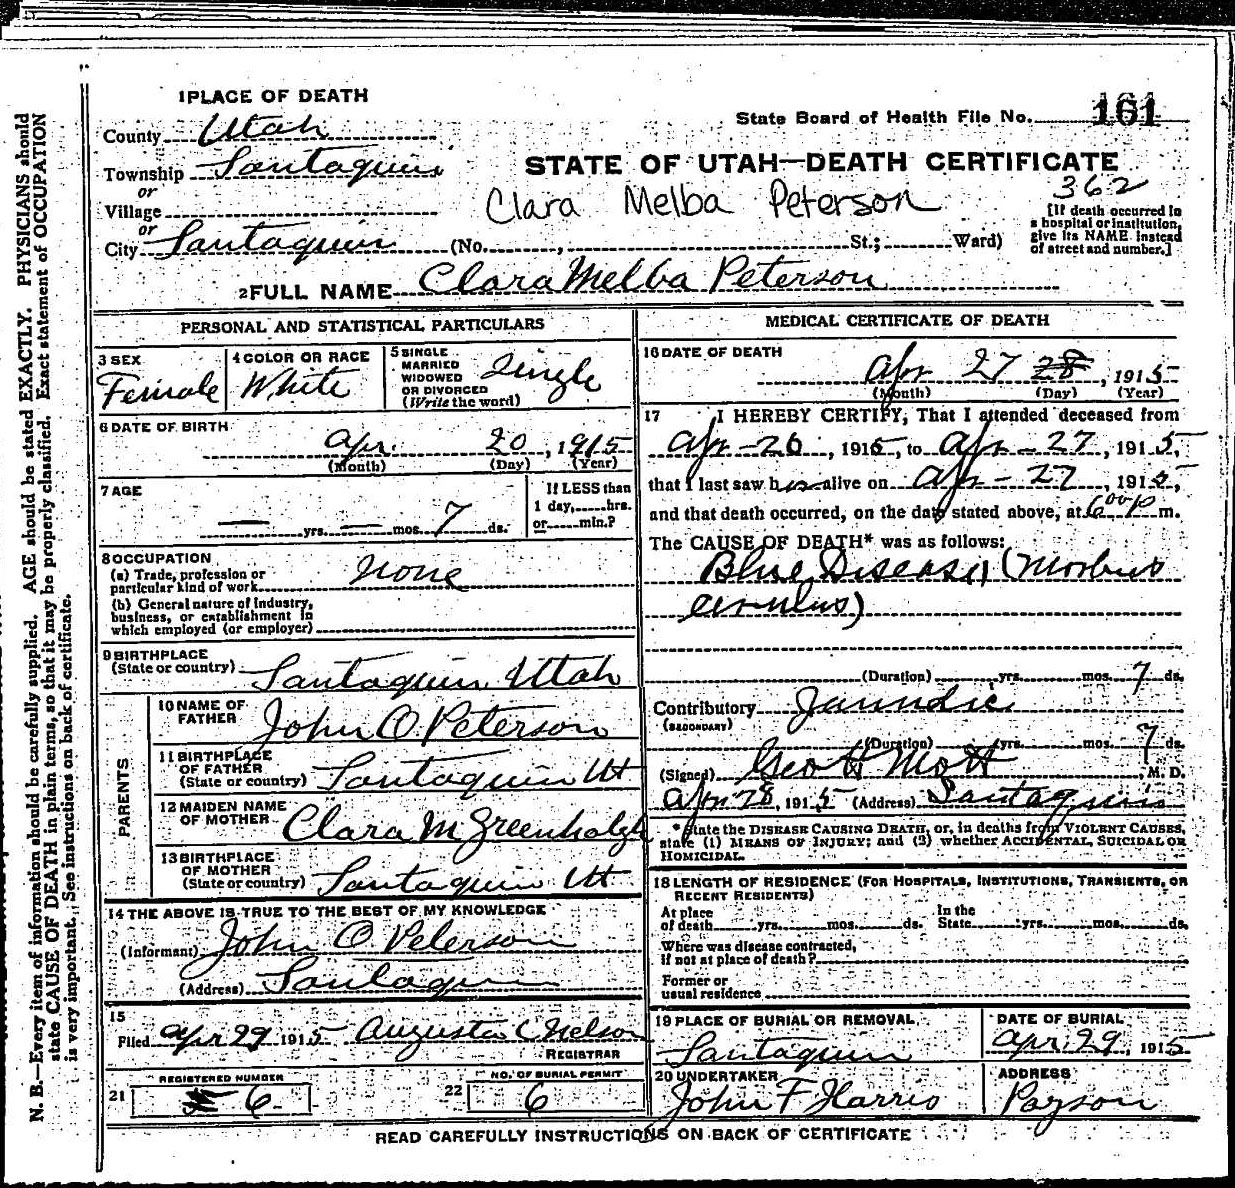 N. B.—Every item of information should be carefully supplied. AGE should be stated EXACTLY. PHYSICIANS should
state CAUSE OF DEATH in plain terms, so that it may be properly classified. Exact statement of OCCUPATION
is very important. See instructions on back of certificate.
1 PLACE OF DEATH
State Board of Health File No. 161
County Utah
STATE OF UTAH—DEATH CERTIFICATE
Township Santaquin
or
Village
Clara Melba Peterson
362
[If death occurred in
a hospital or institution,
give its NAME instead
of street and number.]
or
City Santaquin (No. , St.; Ward)
2 FULL NAME Clara Melba Peterson
PERSONAL AND STATISTICAL PARTICULARS
3 SEX
Female
4 COLOR OR RACE
White
5 SINGLE
MARRIED
WIDOWED
OR DIVORCED
(Write the word)
Single
6 DATE OF BIRTH
Apr. 20, 1915
(Month) (Day) (Year)
7 AGE
— yrs. — mos. 7 ds.
If LESS than
1 day, hrs.
or min.?
8 OCCUPATION
(a) Trade, profession or
particular kind of work None
(b) General nature of industry,
business, or establishment in
which employed (or employer)
9 BIRTHPLACE
(State or country) Santaquin Utah
PARENTS
10 NAME OF
FATHER John O. Peterson
11 BIRTHPLACE
OF FATHER
(State or country) Santaquin Ut
12 MAIDEN NAME
OF MOTHER Clara M Greenhalgh
13 BIRTHPLACE
OF MOTHER
(State or country) Santaquin Ut
14 THE ABOVE IS TRUE TO THE BEST OF MY KNOWLEDGE
(Informant) John O Peterson
(Address) Santaquin
15
Filed Apr 29 1915 Augusta C Nelson
REGISTRAR
21 REGISTERED NUMBER
6
22 NO. OF BURIAL PERMIT
6
MEDICAL CERTIFICATE OF DEATH
16 DATE OF DEATH
Apr 27 28, 1915
(Month) (Day) (Year)
17 I HEREBY CERTIFY, That I attended deceased from
Apr – 26, 1915, to Apr – 27, 1915,
that I last saw her alive on Apr – 27, 1915,
and that death occurred, on the date stated above, at 6 00 P m.
The CAUSE OF DEATH* was as follows:
Blue Disease (Morbus
(Duration) yrs. mos. 7 ds.
Contributory Jaundice
(SECONDARY)
(Duration) yrs. mos. 7 ds.
(Signed) Geo H Mott, M. D.
Apr 28, 1915 (Address) Santaquin
* State the DISEASE CAUSING DEATH, or, in deaths from VIOLENT CAUSES,
state (1) MEANS OF INJURY; and (2) whether ACCIDENTAL, SUICIDAL OR
HOMICIDAL.
18 LENGTH OF RESIDENCE (FOR HOSPITALS, INSTITUTIONS, TRANSIENTS, OR
RECENT RESIDENTS)
At place
of death yrs. mos. ds.
In the
State yrs. mos. ds.
Where was disease contracted,
if not at place of death?
Former or
usual residence
19 PLACE OF BURIAL OR REMOVAL
Santaquin
DATE OF BURIAL
Apr. 29, 1915
20 UNDERTAKER
John F Harris
ADDRESS
Payson
READ CAREFULLY INSTRUCTIONS ON BACK OF CERTIFICATE